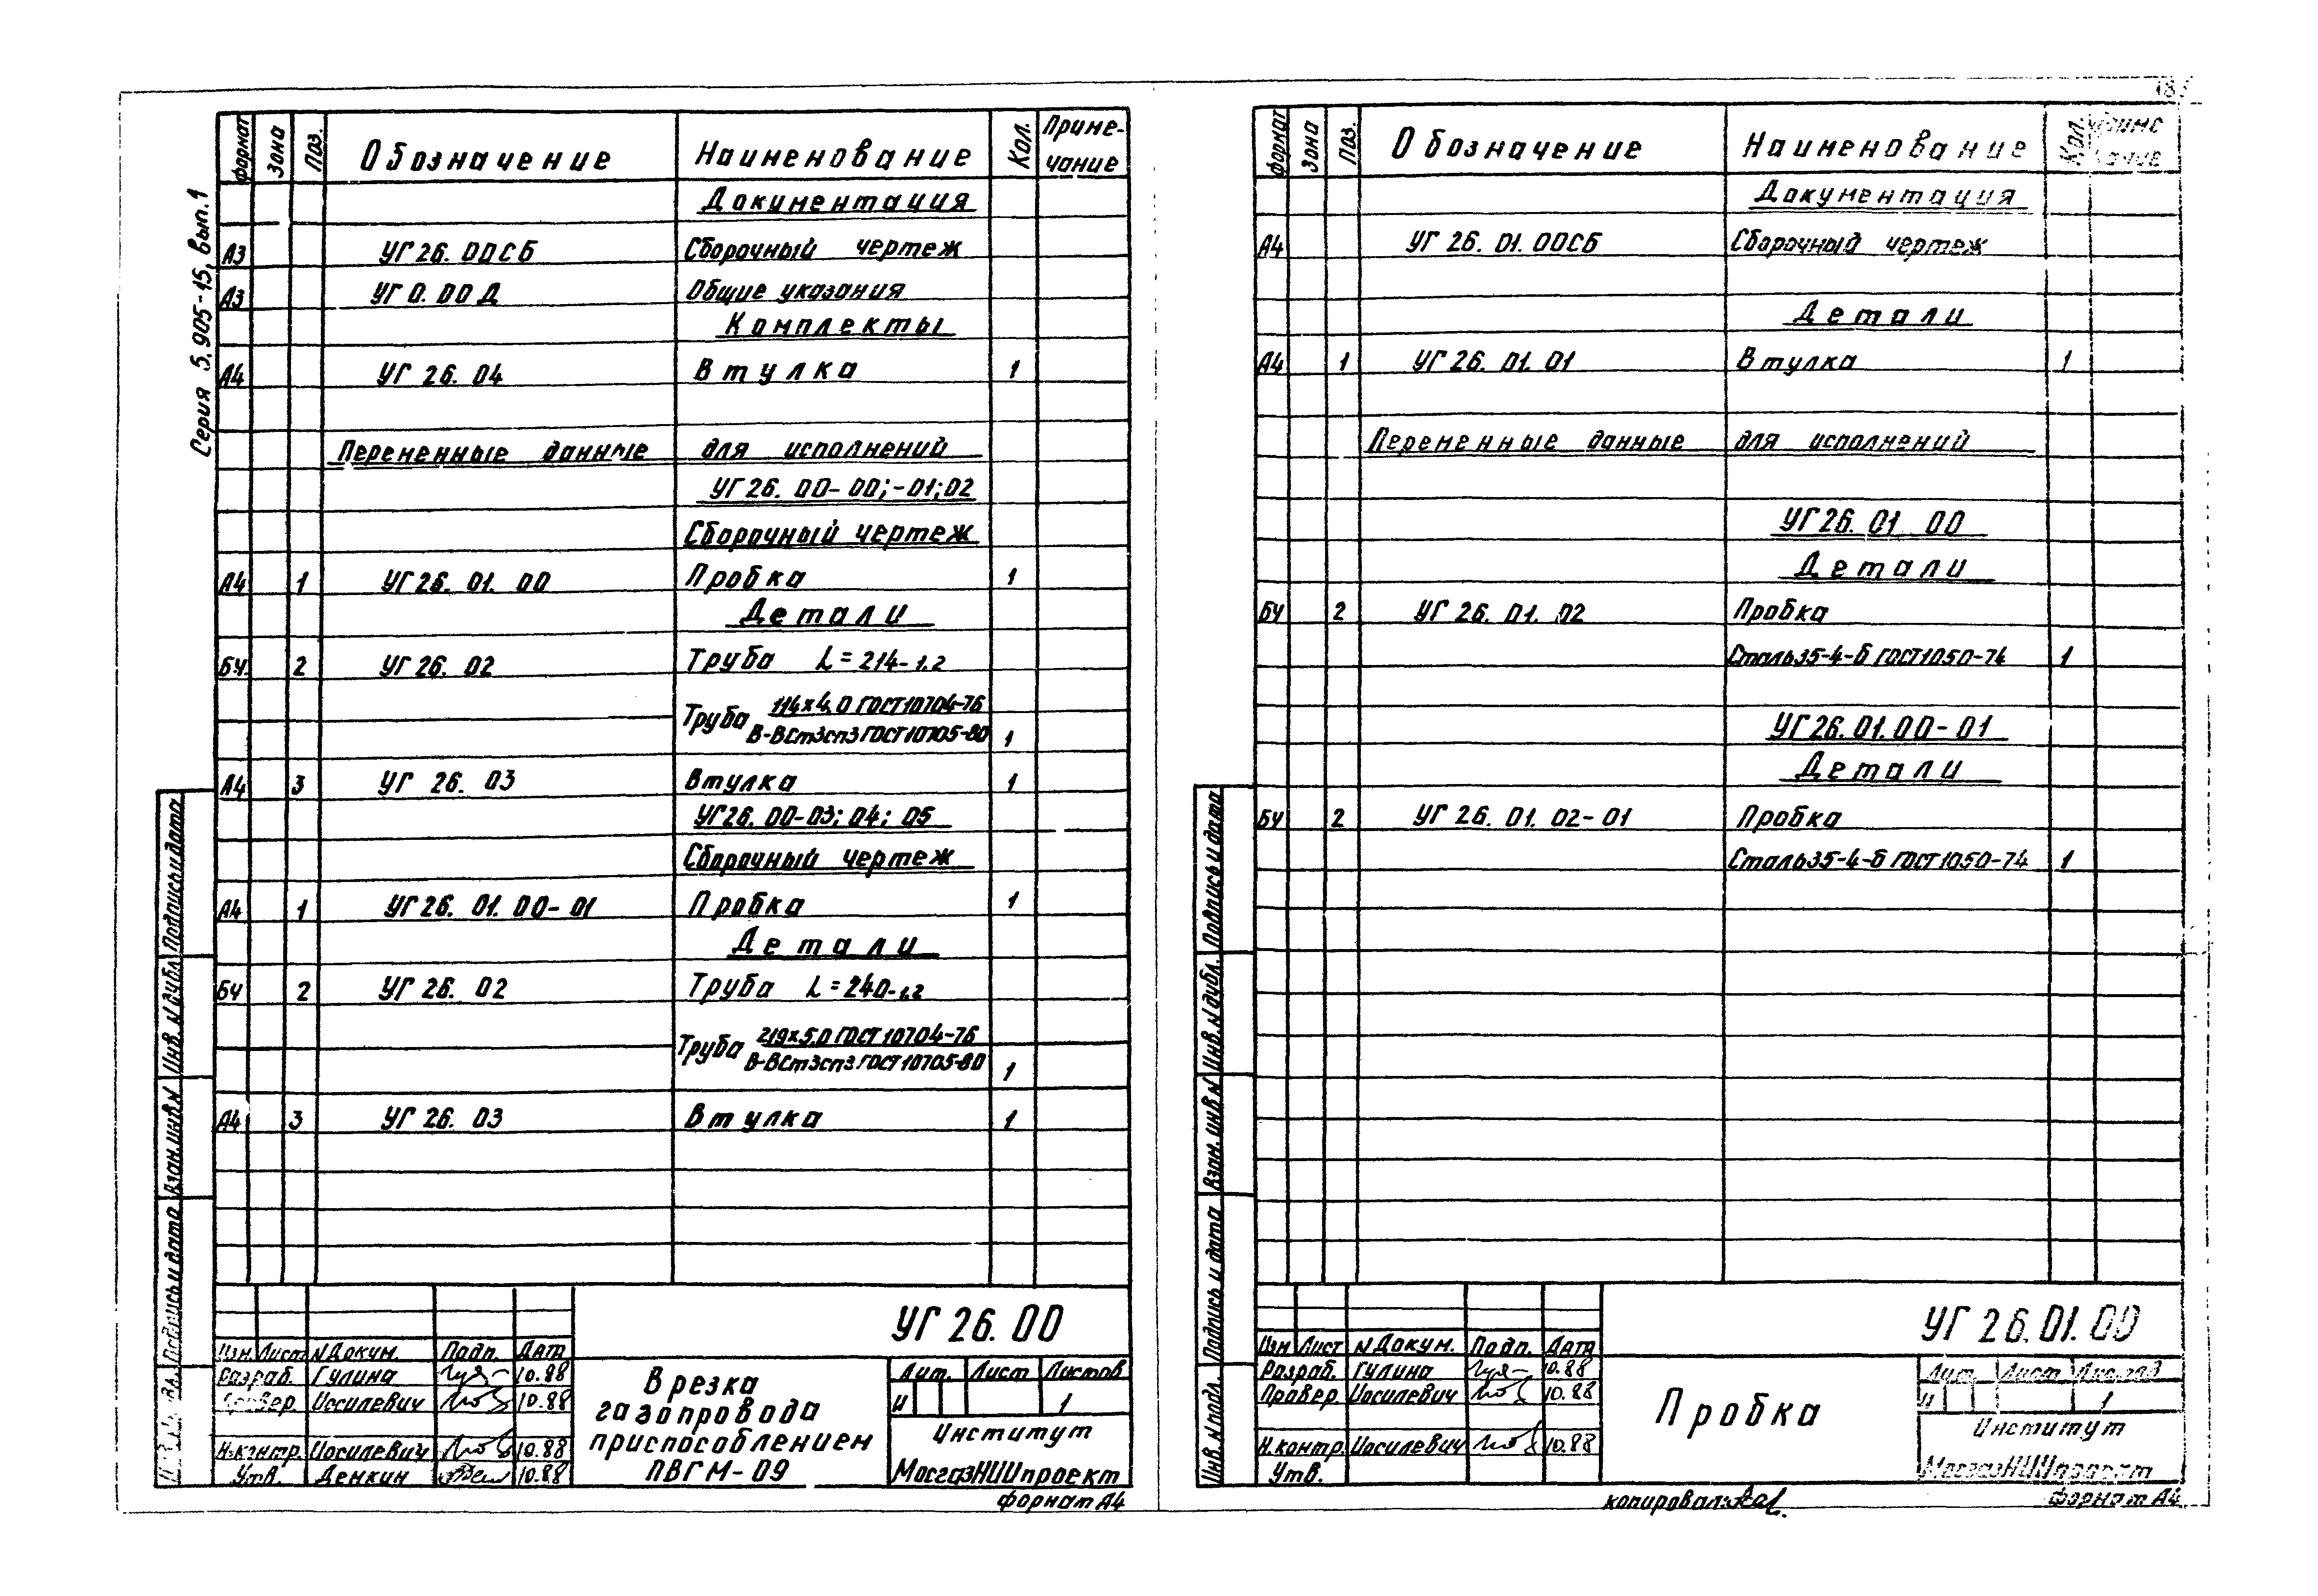 Серия 5.905-15, вып.1
Формат Зона Поз. Обозначение Наименование Кол. Примечание
Документация
А3 УГ 26. 00СБ Сборочный чертеж
А3 УГ 0. 00 Д Общие указания
Комплекты
А4 УГ 26. 04 Втулка 1
Переменные данные для исполнений
УГ 26. 00-00;-01;02
Сборочный чертеж
А4 1 УГ 26. 01. 00 Пробка 1
Детали
БЧ. 2 УГ 26. 02 Труба L=214-1,2
Труба 114×4,0 ГОСТ 10704-76
В-ВСт3сп3 ГОСТ 10705-80 1
А4 3 УГ 26. 03 Втулка 1
УГ 26. 00-03; 04; 05
Сборочный чертеж
А4 1 УГ 26. 01. 00-01 Пробка 1
Детали
БЧ 2 УГ 26. 02 Труба L=240-1,2
Труба 219×5,0 ГОСТ 10704-76
В-ВСт3сп3 ГОСТ 10705-80 1
А4 3 УГ 26. 03 Втулка 1
Подпись и дата
Инв. N дубл.
Взам. инв N
Подпись и дата
УГ 26. 00
Изм. Лист N Докум. Подп. Дата
Разраб. Гулина 10.88
Провер. Иосилевич 10.88
Н.контр. Иосилевич 10.88
Утв. Демкин 10.88
Врезка
газопровода
приспособлением
ПВГМ-09
Лит. Лист Листов
И 1
Институт
МосгазНИИпроект
Формат А4
Формат Зона Поз. Обозначение Наименование Кол. Примечание
Документация
А4 УГ 26. 01. 00СБ Сборочный чертеж
Детали
А4 1 УГ 26. 01. 01 Втулка 1
Переменные данные для исполнений
УГ 26. 01. 00
Детали
БЧ 2 УГ 26. 01. 02 Пробка
Сталь35-4-б ГОСТ 1050-74 1
УГ 26. 01. 00-01
Детали
БЧ 2 УГ 26. 01. 02-01 Пробка
Сталь35-4-б ГОСТ 1050-74 1
Подпись и дата
Инв. N дубл.
Взам. инв N
Подпись и дата
Инв. N подл.
УГ 26. 01. 00
Изм Лист N Докум. Подп. Дата
Разраб. Гулина 10.88
Провер. Иосилевич 10.88
Н.контр. Иосилевич 10.88
Утв.
Пробка
Лит. Лист Листов
И 1
Институт
МосгазНИИпроект
копировал:
Формат А4